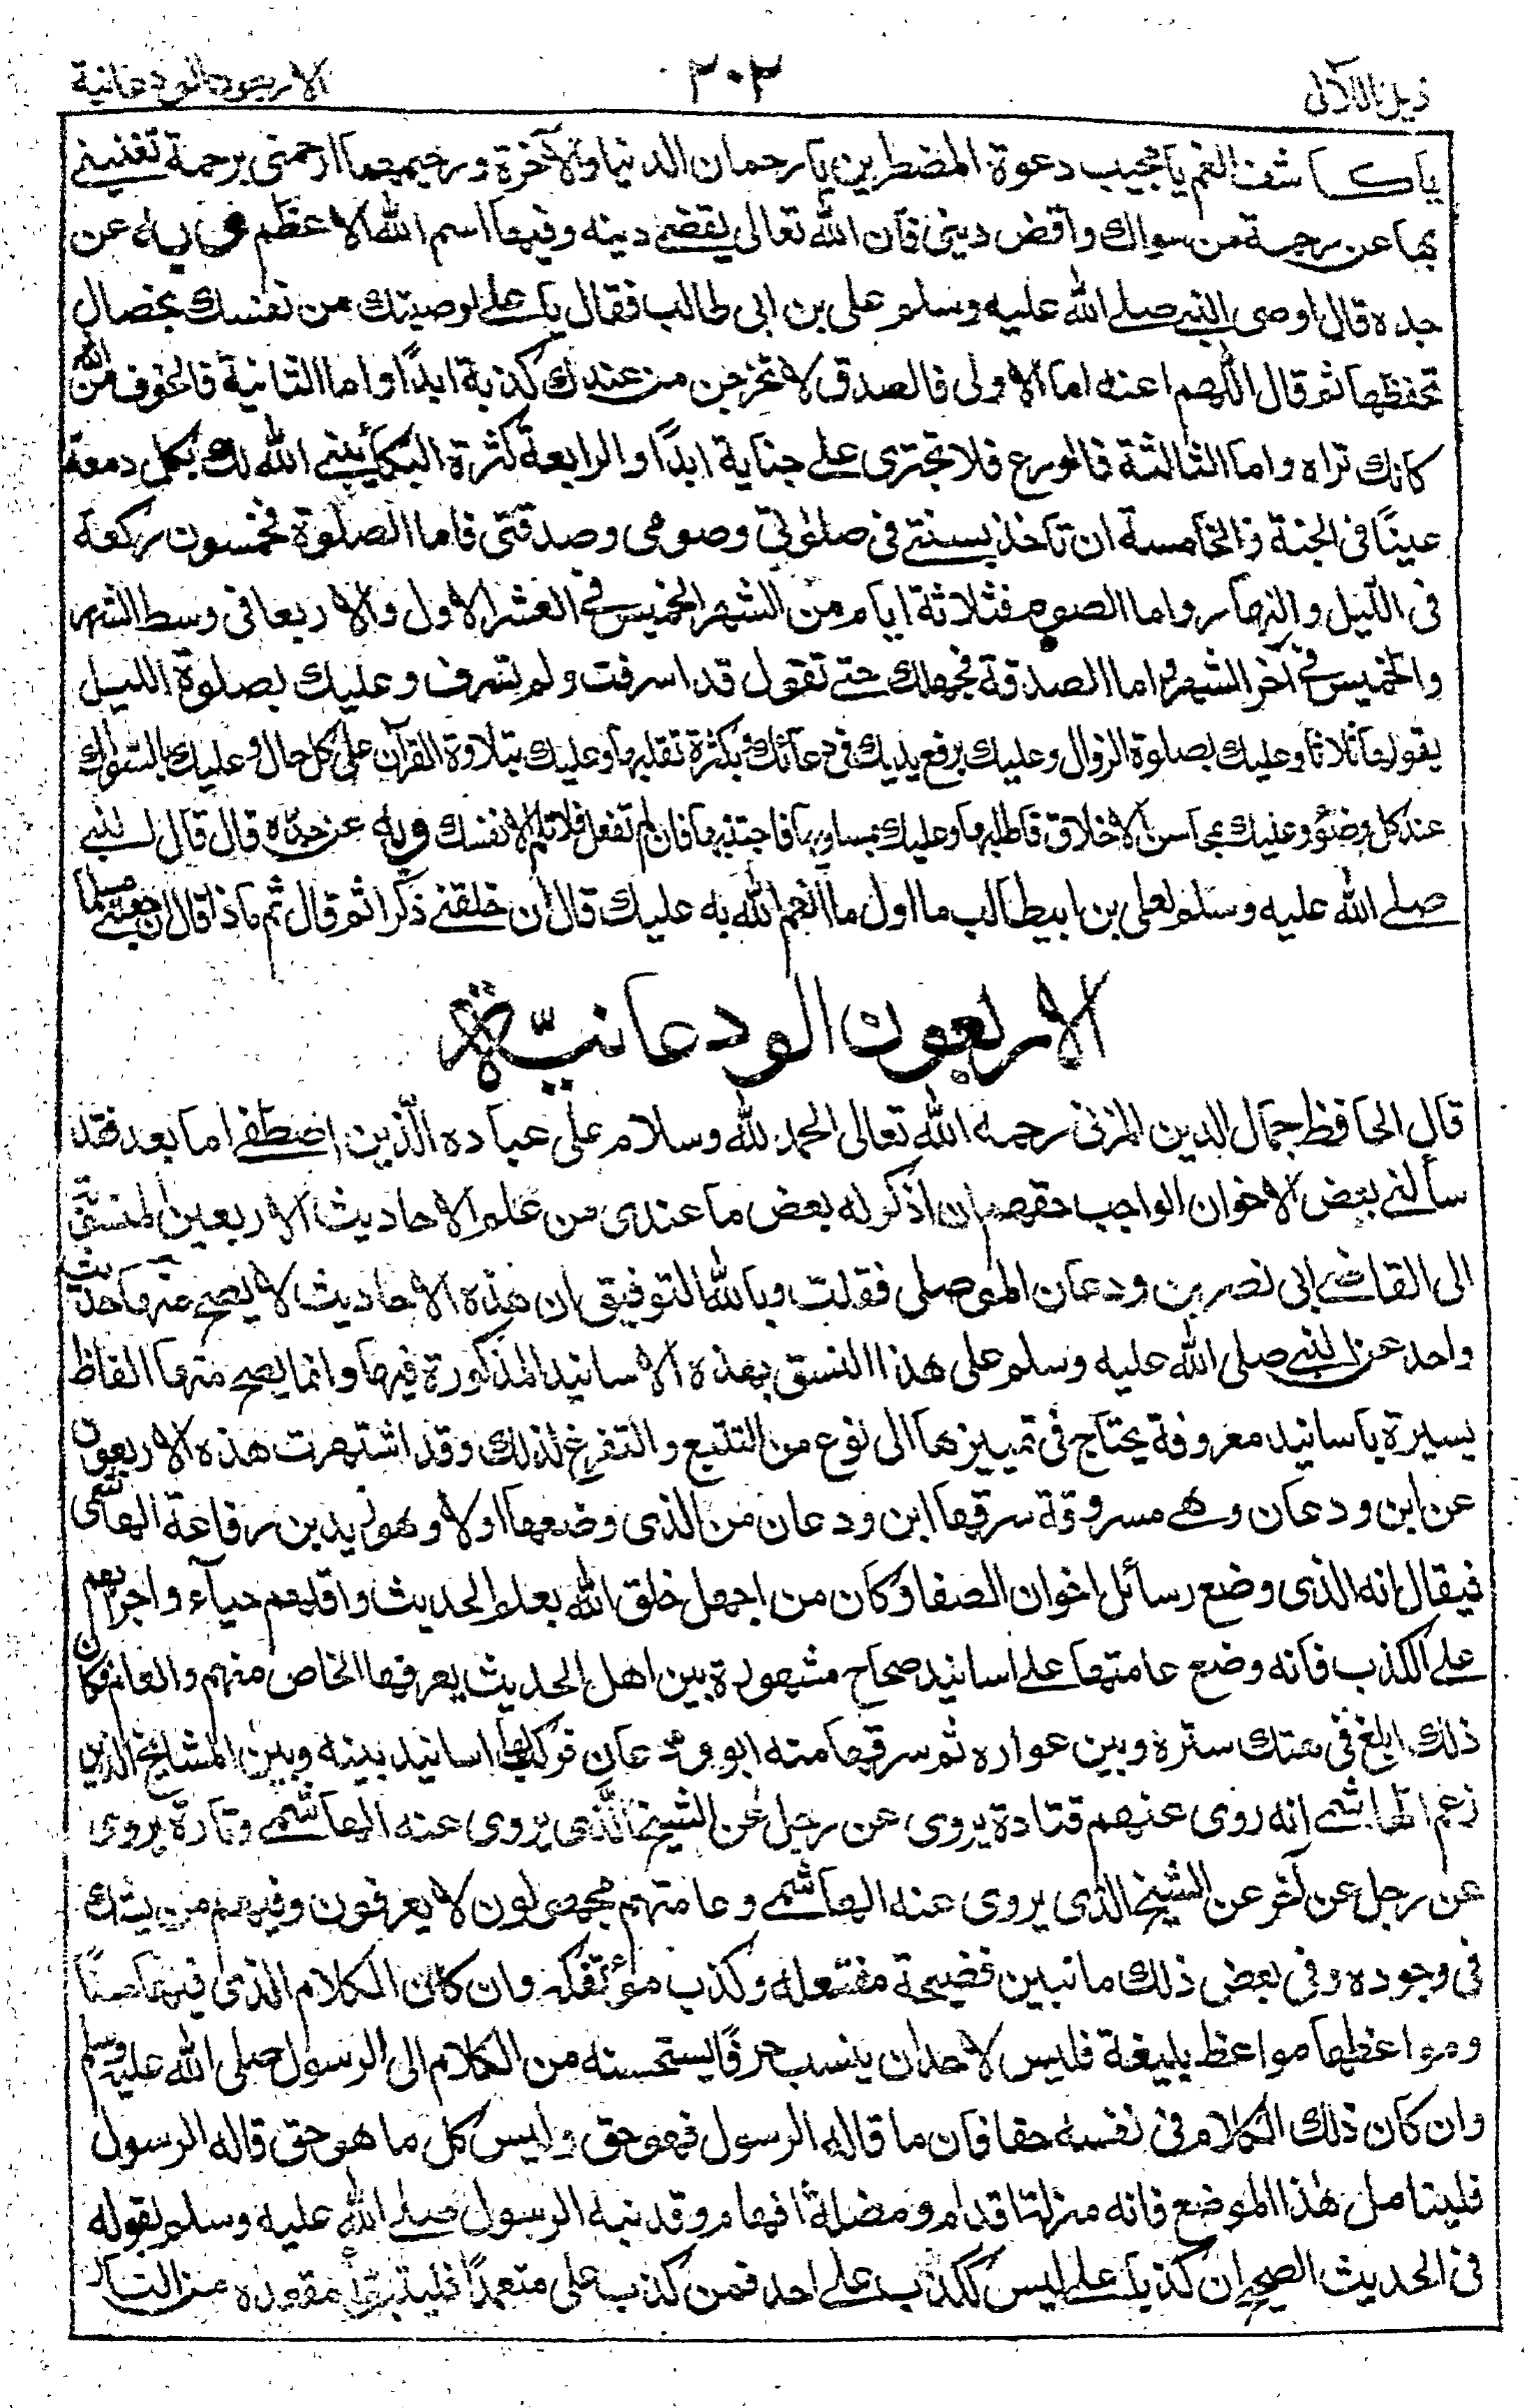 ذيل اللآلى
٣٠٢
الاربعون الودعانية
يا كاشف الغم يا مجيب دعوة المضطرين يا رحمان الدنيا والآخرة ورحيمهما ارحمنى برحمة تغنينے
بها عن رحمة من سواك واقض دينى فان الله تعالى يقضے دينه وفيها اسم الله الاعظم وبه عن
جده قال اوصى النبے صلے الله عليه وسلم على بن ابى طالب فقال يا علے اوصيتك من نفسك بخصال
تحفظها ثم قال اللهم اعنه اما الاولى فالصدق لا تخرجن من عندك كذبة ابدًا واما الثانية فالخوف من الله
كانك تراه واما الثالثة فالورع فلا تجترى علے جناية ابدًا والرابعة كثرة البكا يبنے الله لك بكل دمعة
عينًا فى الجنة والخامسة ان تاخذ بسنتے فى صلوتي وصومى وصدقتى فاما الصلوة فخمسون ركعة
فى الليل والنهار واما الصوم فثلاثة ايام من الشهر الخميس فے العشر الاول والاربعا فى وسط الشهر
والخميس فے آخر الشهر واما الصدقة فجهدك حتے تقول قد اسرفت ولم تسرف وعليك بصلوة الليل
يقولها ثلاثا وعليك بصلوة الزوال وعليك برفع يديك فى دعائك بكثرة تقلبها وعليك بتلاوة القرآن على كل حال وعليك بالسواك
عند كل وضؤ وعليك بمحاسن الاخلاق فاطلبها وعليك بمساويها فاجتنبها فان لم تفعل فلا تلم الا نفسك وبه عن جده قال قال النبے
صلے الله عليه وسلم لعلى بن ابيطالب ما اول ما انعم الله به عليك قال ان خلقنے ذكرا ثم قال ثم ماذا قال ان جعلنے مسلما
الاربعون الودعانيّة
قال الحافظ جمال الدين المزنى رحمه الله تعالى الحمد لله وسلام على عباده الذين اصطفے اما بعد فقد
سألنے بعض الاخوان الواجب حقهم ان اذكر له بعض ما عندى من علم الاحاديث الاربعين المنسوبة
الى القاضے ابى نصر بن ودعان الموصلى فقلت وبالله التوفيق ان هذه الاحاديث لا يصح منها حديث
واحد عن النبے صلى الله عليه وسلم على هذا النسق بهذه الاسانيد المذكورة فيها وانما يصح منها الفاظ
يسيرة باسانيد معروفة يحتاج فى تمييزها الى نوع من التتبع والتفرغ لذلك وقد اشتهرت هذه الاربعون
عن ابن ودعان وهے مسروقة سرقها ابن ودعان من الذى وضعها اولا وهو زيد بن رفاعة الهاشمى
فيقال انه الذى وضع رسائل اخوان الصفا وكان من اجهل خلق الله بعلم الحديث واقلهم حياء واجرأهم
علے الكذب فانه وضع عامتها علے اسانيد صحاح مشهورة بين اهل الحديث يعرفها الخاص منهم والعام فكان
ذلك ابلغ فى هتك سترة وبين عواره ثم سرقها منه ابو ودعان فركب لها اسانيد بينه وبين المشايخ الذين
زعم الهاشمے انه روى عنهم قتادة يروى عن رجل عن الشيخ الذى يروى عنه الهاشمے وتارة يروى
عن رجل عن آخر عن الشيخ الذى يروى عنه الهاشمے وعامتهم مجهولون لا يعرفون وفيهم من يشك
فى وجوده وفى بعض ذلك ما نبين فضيحة مفتعله وكذب مؤتفكه وان كان الكلام الذى فيها حسنًا
ومواعظها مواعظ بليغة فليس لاحد ان ينسب حرفًا يستحسنه من الكلام الى الرسول صلى الله عليه وسلم
وان كان ذلك الكلام فى نفسه حقا فان ما قاله الرسول فهو حق وليس كل ما هو حق قاله الرسول
فليتامل هذا الموضع فانه مزلة اقدام ومضلة افهام وقد نبه الرسول صلے الله عليه وسلم بقوله
فى الحديث الصحيح ان كذبا علے ليس ككذب علے احد فمن كذب على متعمدًا فليتبوّأ مقعده من النار